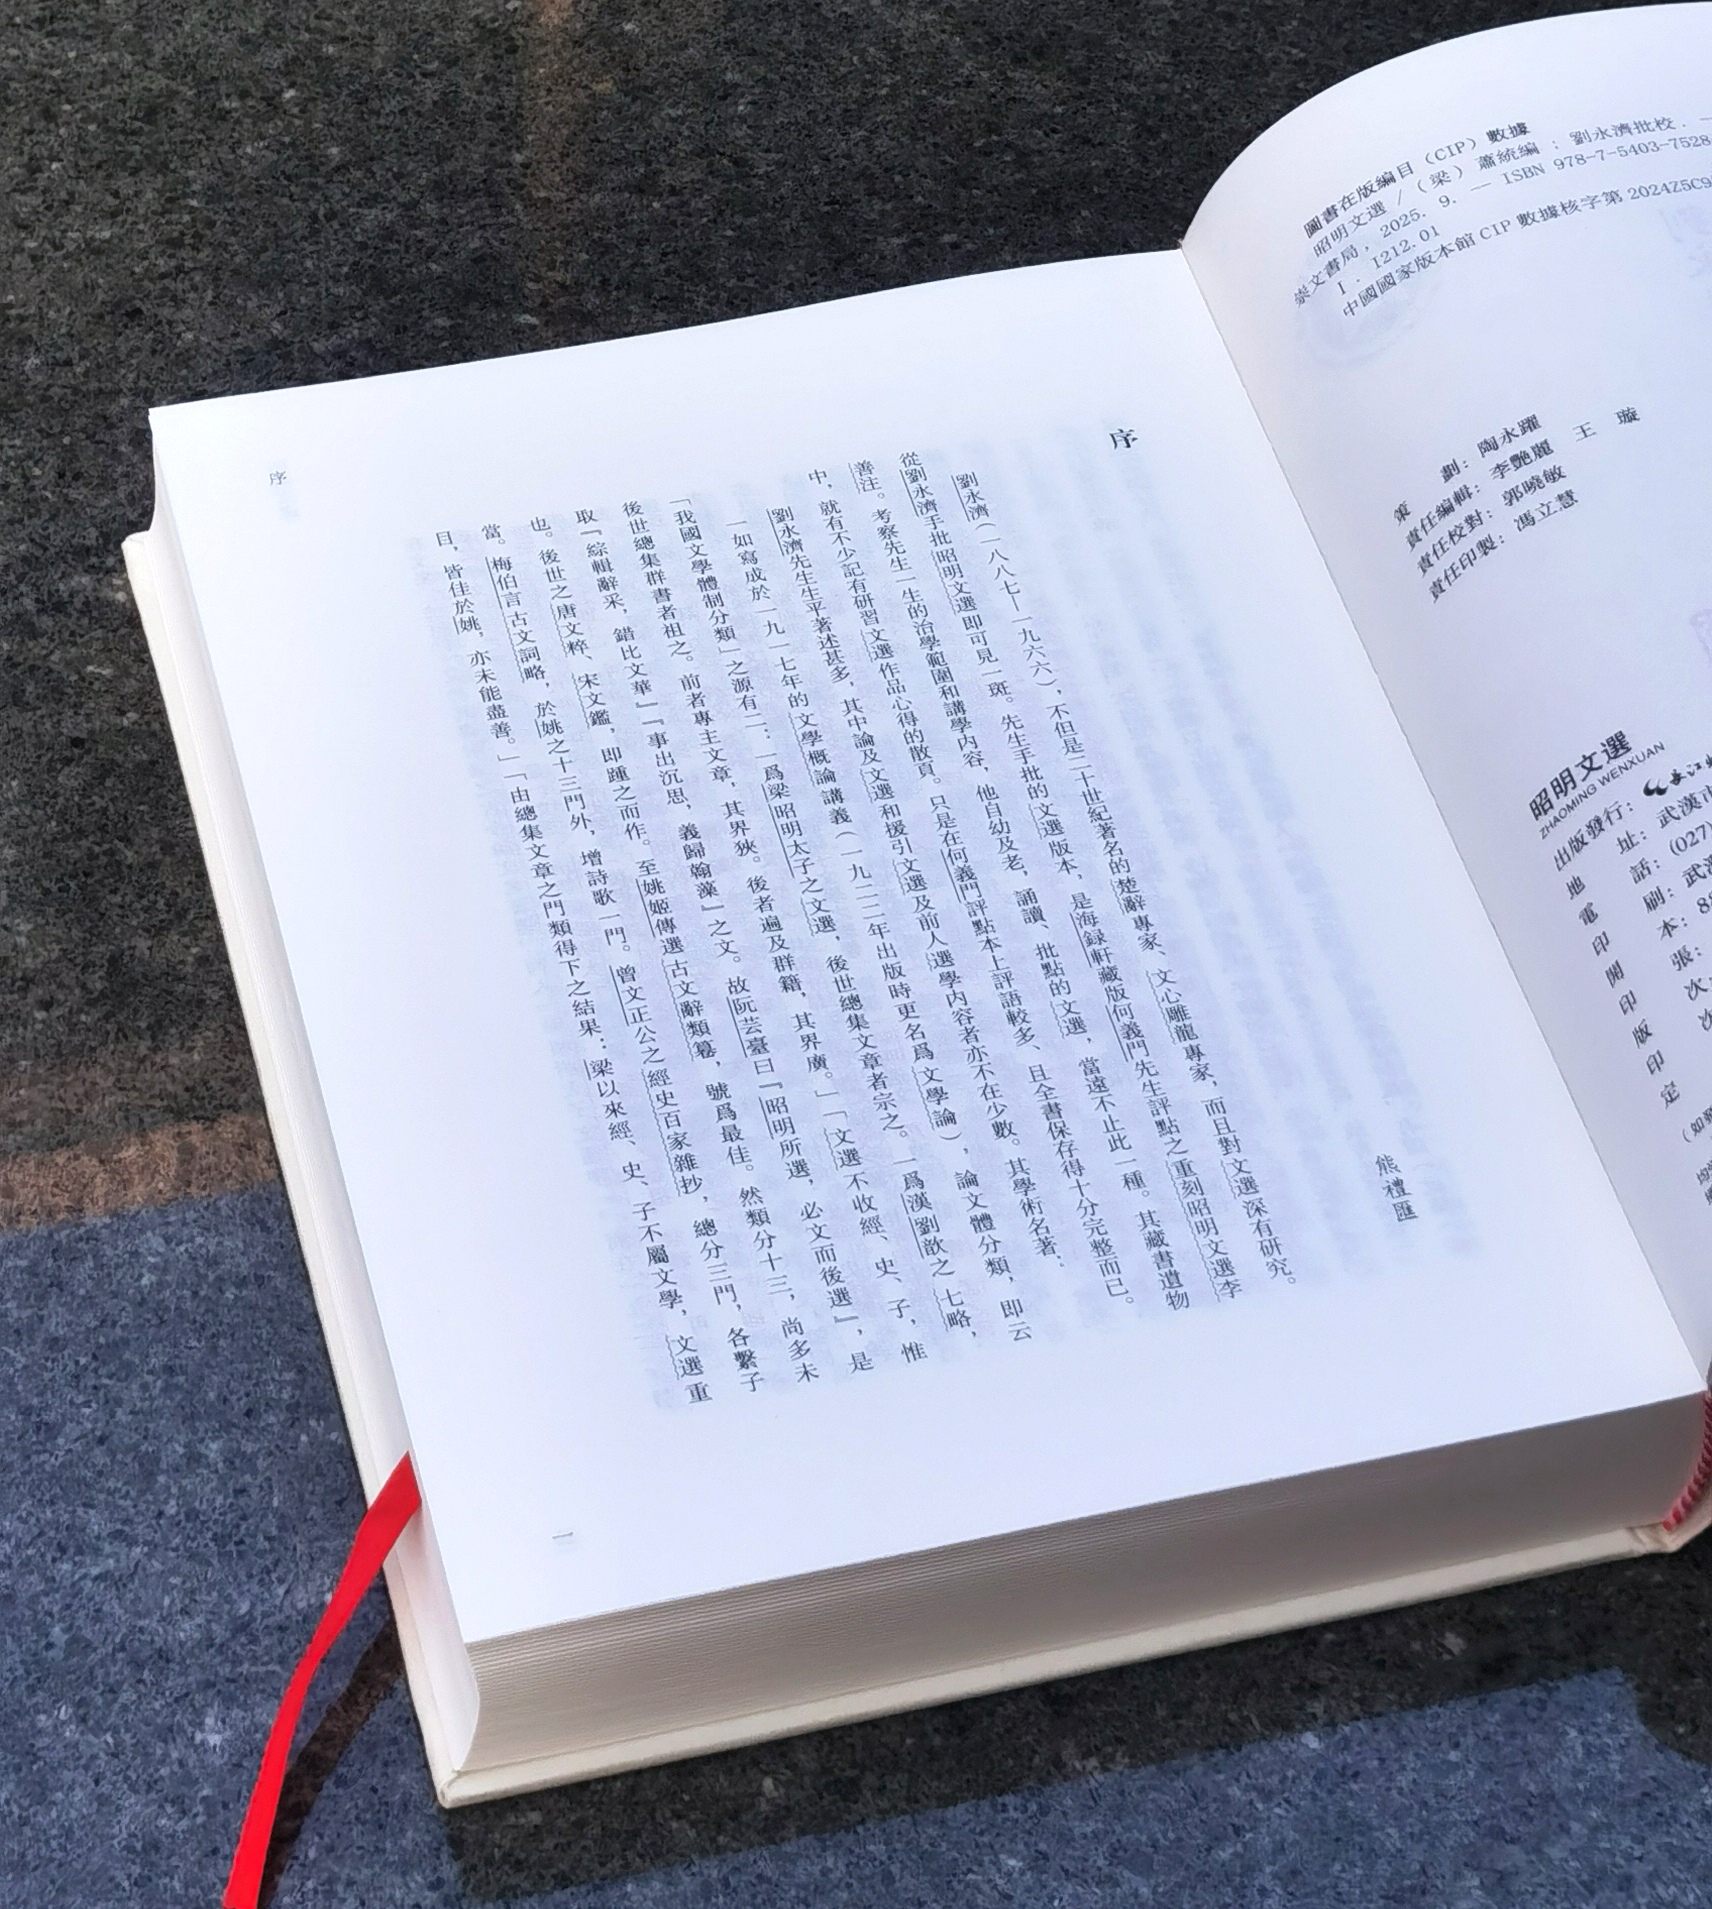 圖書在版編目（CIP）數據
昭明文選 /（梁）蕭統編 ; 劉永濟批校. —
崇文書局, 2025. 9. — ISBN 978-7-5403-7528
Ⅰ. I212.01
中國國家版本館 CIP 數據核字第 2024Z5C9
策　劃：陶永躍
責任編輯：李艷麗　王　璇
責任校對：郭曉敏
責任印製：馮立慧
昭明文選
ZHAOMING WENXUAN
出版發行：長江
地　址：武漢市
電　話：(027)
印　刷：武漢
開　本：88
印　張：
版　次：
印　次：
定
（如
序
熊禮匯
劉永濟（一八八七—一九六六），不但是二十世紀著名的楚辭專家、文心雕龍專家，而且對文選深有研究。
從劉永濟手批昭明文選即可見一斑。先生手批的文選版本，是海録軒藏版何義門先生評點之重刻昭明文選李
善注。考察先生一生的治學範圍和講學内容，他自幼及老，誦讀、批點的文選，當遠不止此一種。其藏書遺物
中，就有不少記有研習文選作品心得的散頁。只是在何義門評點本上評語較多、且全書保存得十分完整而已。
劉永濟先生生平著述甚多，其中論及文選和援引文選及前人選學内容者亦不在少數。其學術名著，
一如寫成於一九一七年的文學概論講義（一九二二年出版時更名爲文學論），論文體分類，即云
「我國文學體制分類」之源有二：一爲梁昭明太子之文選，後世總集文章者宗之。一爲漢劉歆之七略，
後世總集群書者祖之。前者專主文章，其界狹。後者遍及群籍，其界廣。」「文選不收經、史、子，惟
取『綜輯辭采，錯比文華』『事出沉思，義歸翰藻』之文。故阮芸臺曰『昭明所選，必文而後選』，是
也。後世之唐文粹、宋文鑑，即踵之而作。至姚姬傳選古文辭類篹，號爲最佳。然類分十三，尚多未
當。梅伯言古文詞略，於姚之十三門外，增詩歌一門。曾文正公之經史百家雜抄，總分三門，各繫子
目，皆佳於姚，亦未能盡善。」「由總集文章之門類得下之結果：梁以來經、史、子不屬文學，文選重
序
一